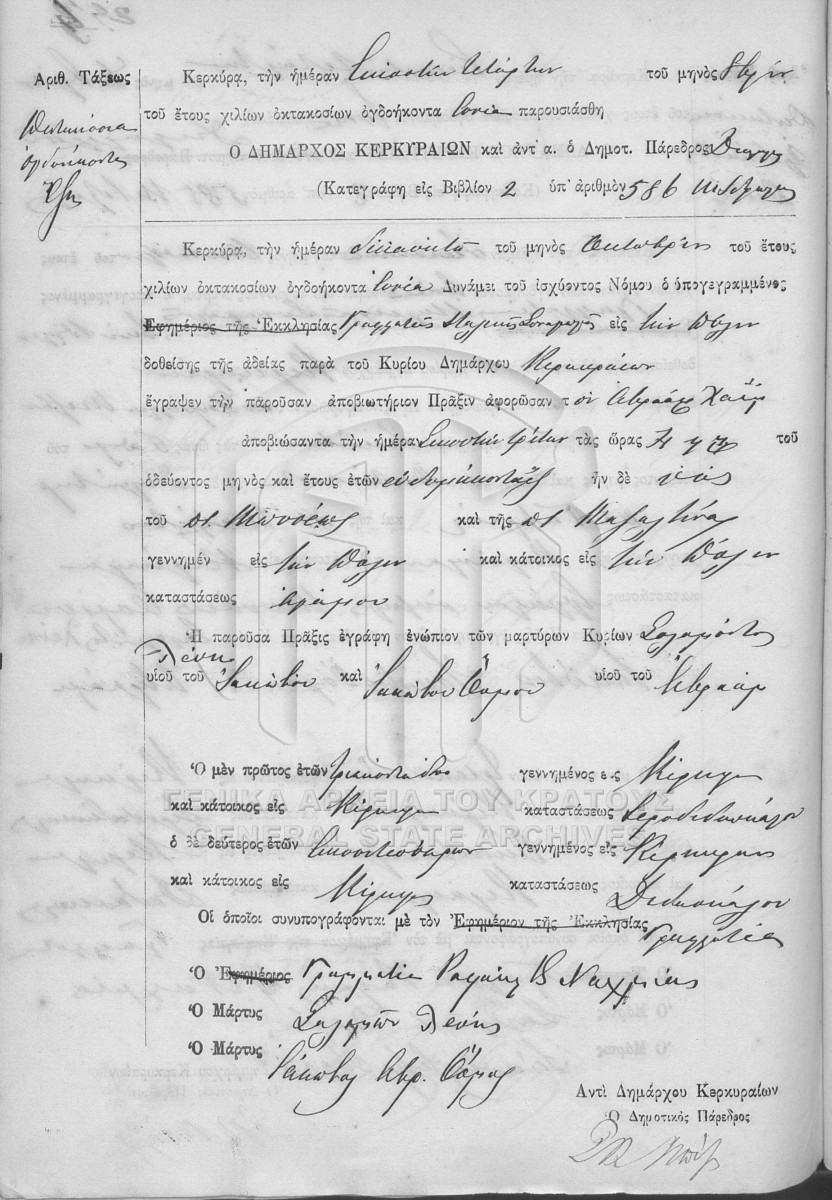 Ἀριθ. Τάξεως
Πεντακόσια
ὀγδοήκοντα
ἕξη
Κερκύρᾳ, τὴν ἡμέραν Εἰκοστὴν τετάρτην τοῦ μηνὸς
τοῦ ἔτους χιλίων ὀκτακοσίων ὀγδοήκοντα ἐννέα παρουσιάσθη
Ο ΔΗΜΑΡΧΟΣ ΚΕΡΚΥΡΑΙΩΝ καὶ ἀντ᾽ α. ὁ Δημοτ. Πάρεδρος
(Κατεγράφη εἰς Βιβλίον 2 ὑπ᾽ ἀριθμὸν 586
Κερκύρᾳ, τὴν ἡμέραν τοῦ μηνὸς Ὀκτωβρίου τοῦ ἔτους
χιλίων ὀκτακοσίων ὀγδοήκοντα ἐννέα Δυνάμει τοῦ ἰσχύοντος Νόμου ὁ ὑπογεγραμμένος
Ἐφημέριος τῆς Ἐκκλησίας Γραμματεὺς Ἰταλικῆς Συναγωγῆς εἰς τὴν Πόλιν
δοθείσης τῆς ἀδείας παρὰ τοῦ Κυρίου Δημάρχου Κερκυραίων
ἔγραψεν τὴν παροῦσαν ἀποβιωτήριον Πρᾶξιν ἀφορῶσαν τὸν Ἀβραὰμ Χαΐμ
ἀποβιώσαντα τὴν ἡμέραν Εἰκοστὴν τρίτην τὰς ὥρας 7 μ μ τοῦ
ὁδεύοντος μηνὸς καὶ ἔτους ἐτῶν ἑβδομήκοντα ἓξ ἦν δὲ υἱὸς
τοῦ ποτ. Μωυσέως καὶ τῆς ποτ. Μαζαλτίνας
γεννημέν εἰς τὴν Πόλιν καὶ κάτοικος εἰς τὴν Πόλιν
καταστάσεως ἐγγάμου
Ἡ παροῦσα Πρᾶξις ἐγράφη ἐνώπιον τῶν μαρτύρων Κυρίων Σολομόντος
Λέση
υἱοῦ τοῦ Ἰακώβου καὶ Ἰακώβου Ὄσμου υἱοῦ τοῦ Ἀβραὰμ
Ὁ μὲν πρῶτος ἐτῶν τριάκοντα δύο γεννημένος εἰς Κέρκυραν
καὶ κάτοικος εἰς Κέρκυραν καταστάσεως Ἱεροδιδασκάλου
ὁ δὲ δεύτερος ἐτῶν εἰκοσιτεσσάρων γεννημένος εἰς Κέρκυραν
καὶ κάτοικος εἰς Κέρκυραν καταστάσεως Διδασκάλου
Οἱ ὁποῖοι συνυπογράφονται μὲ τὸν Ἐφημέριον τῆς Ἐκκλησίας
Γραμματέα
Ὁ Ἐφημέριος Γραμματέας Ραφαὴλ Β Ναχμίας
Ὁ Μάρτυς Σολομὼν Λέσης
Ὁ Μάρτυς Ἰάκωβος Ἀβρ. Ὄσμος
Ἀντὶ Δημάρχου Κερκυραίων
Ὁ Δημοτικὸς Πάρεδρος
ΓΕΝΙΚΑ ΑΡΧΕΙΑ ΤΟΥ ΚΡΑΤΟΥΣ
GENERAL STATE ARCHIVES